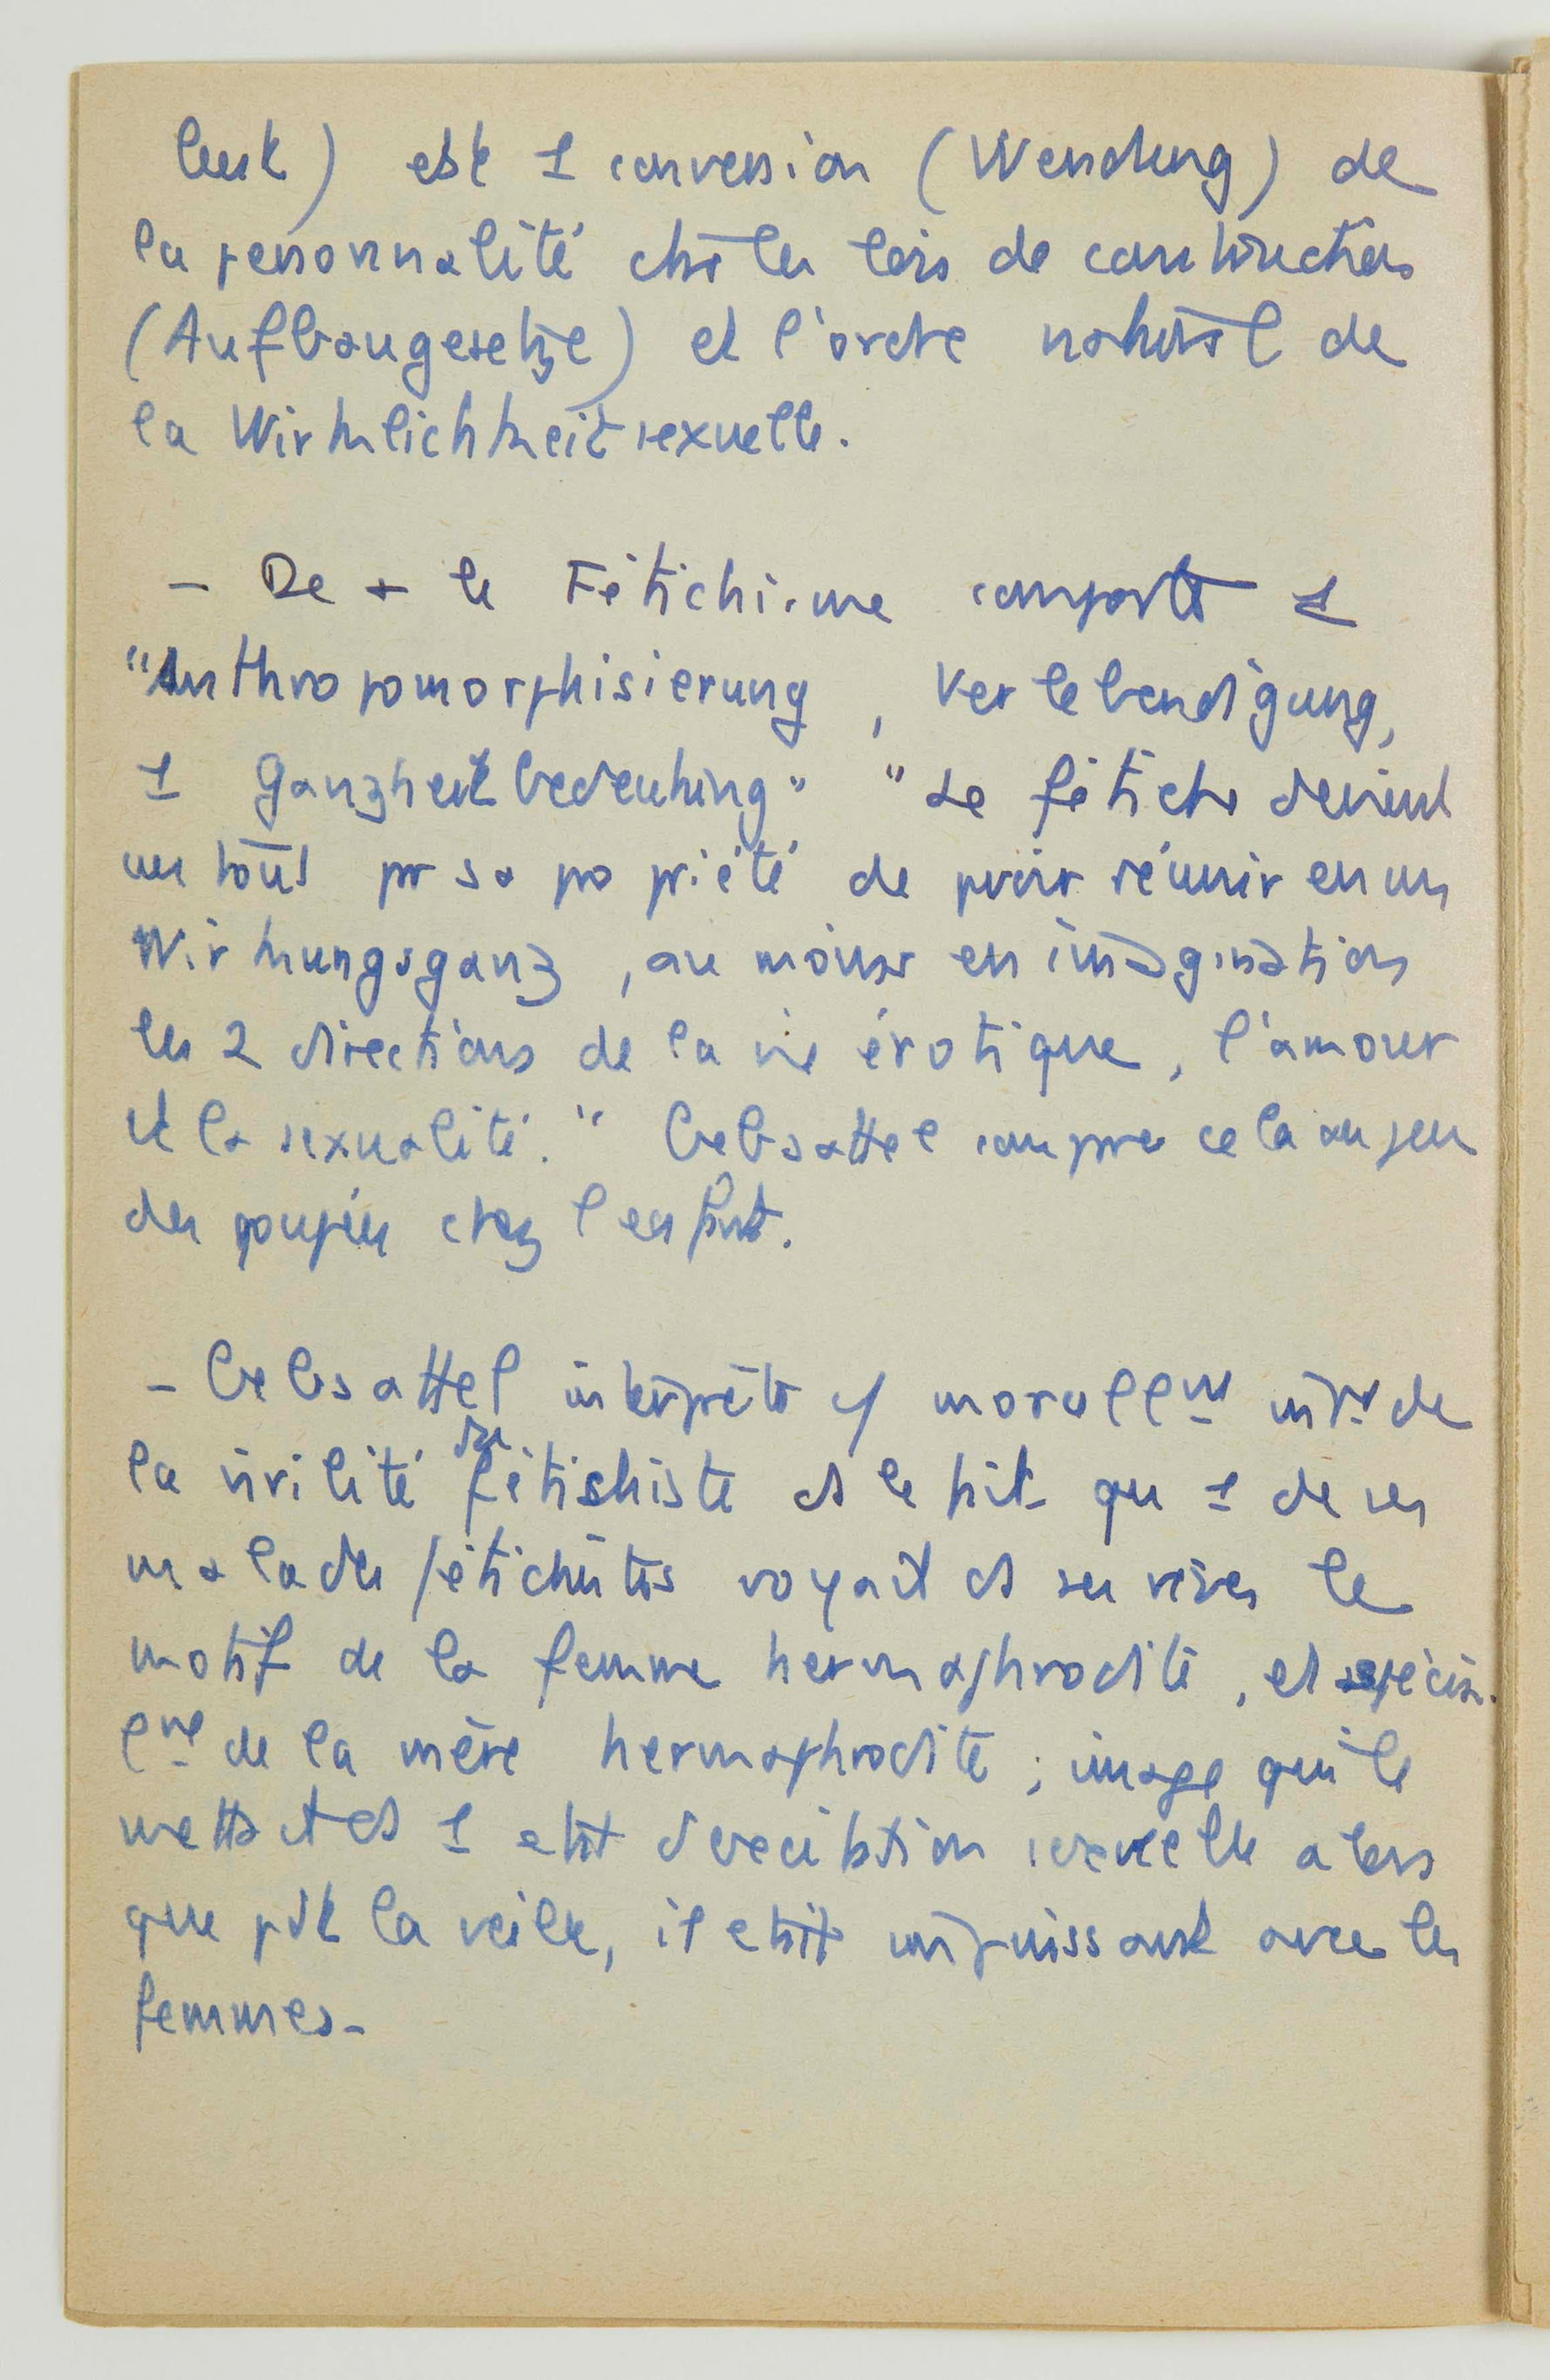 est 1 conversion (Wendung) de
la personnalité les lois de construction
(Aufbaugesetze) et l'ordre naturel de
la Wirklichkeit sexuelle.
– De + le Fétichisme comporte 1
"Anthropomorphisierung, Verlebendigung,
1 Ganzheitbedeutung" "Le fétiche devient
un tout pr sa propriété de pvoir réunir en un
Wirkungsganz, au moins en imagination
les 2 directions de la vie érotique, l'amour
et la sexualité." Gebsattel compare cela au jeu
des poupées chez l'enfant.
– Gebsattel interprète moralemt de
la virilité du fétichiste ds le fait que 1 de ses
malades fétichistes voyait ds ses rêves le
motif de la femme hermaphrodite, et spécia-
lmt de la mère hermaphrodite; image qui le
mettait ds 1 état d'excitation sexuelle alors
que pdt la veille, il était impuissant avec les
femmes –